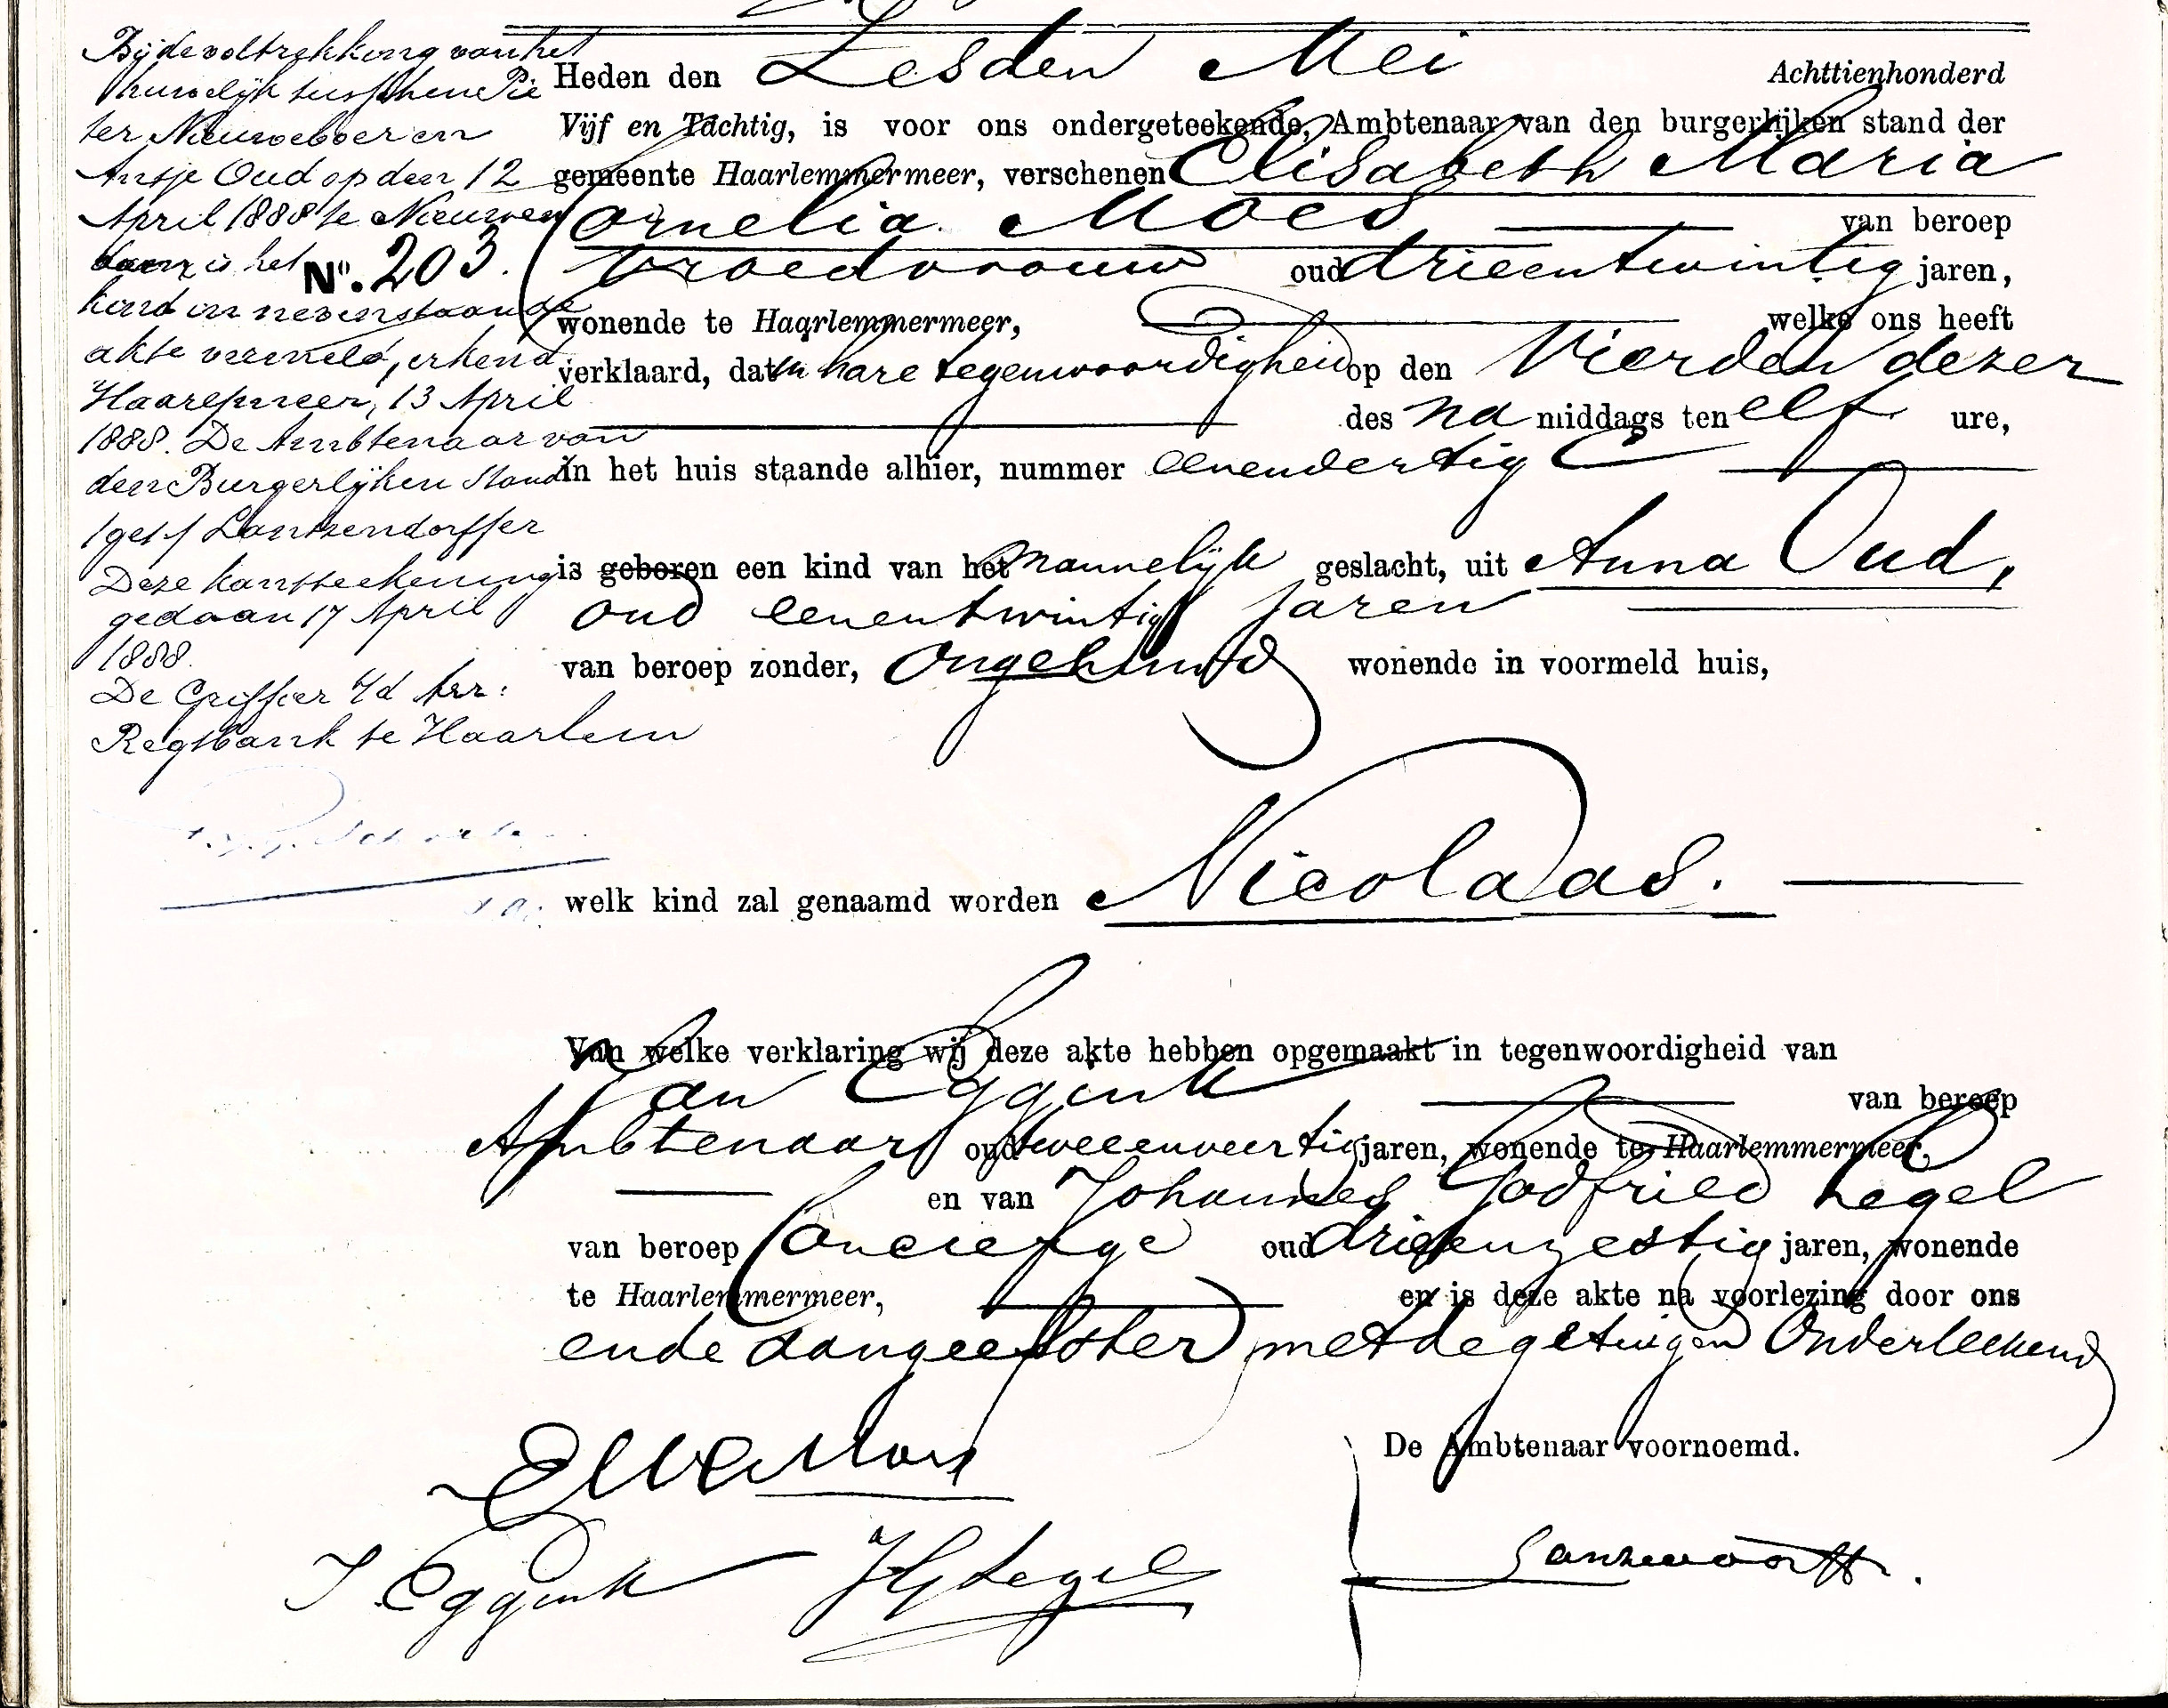 Bij de voltrekking van het
huwelijk tusschen Pie
ter Nieuweboer en
Antje Oud op den 12
April 1888 te Nieuwen
is het
kind in nevenstaande
akte vermeld, erkend
Haarlmeer, 13 April
1888. De Ambtenaar van
den Burgerlijken Stand
/get/ Lantzendorffer
Deze kantteekening
gedaan 17 April
1888.
De Griffier v/d Arr:
Regtbank te Haarlem
No. 203.
Heden den Zesden Mei Achttienhonderd
Vijf en Tachtig, is voor ons ondergeteekende, Ambtenaar van den burgerlijken stand der
gemeente Haarlemmermeer, verschenen Elisabeth Maria
Cornelia Moes van beroep
Vroedvrouw oud drieentwintig jaren,
wonende te Haarlemmermeer, welke ons heeft
verklaard, dat in hare tegenwoordigheid op den Vierden dezer
des na middags ten elf ure,
in het huis staande alhier, nummer eenendertig C
is geboren een kind van het mannelijk geslacht, uit Anna Oud,
oud eenentwintig jaren
van beroep zonder, ongehuwd wonende in voormeld huis,
welk kind zal genaamd worden Nicolaas.
Van welke verklaring wij deze akte hebben opgemaakt in tegenwoordigheid van
Jan Eggink van beroep
Ambtenaar oud tweeenveertig jaren, wonende te Haarlemmermeer,
en van Johannes Godfried Legel
van beroep Concierge oud drieenzestig jaren, wonende
te Haarlemmermeer, en is deze akte na voorlezing door ons
ende aangeefster met de getuigen Onderteekend
De Ambtenaar voornoemd.
EMC Moes
J Eggink JGLegel